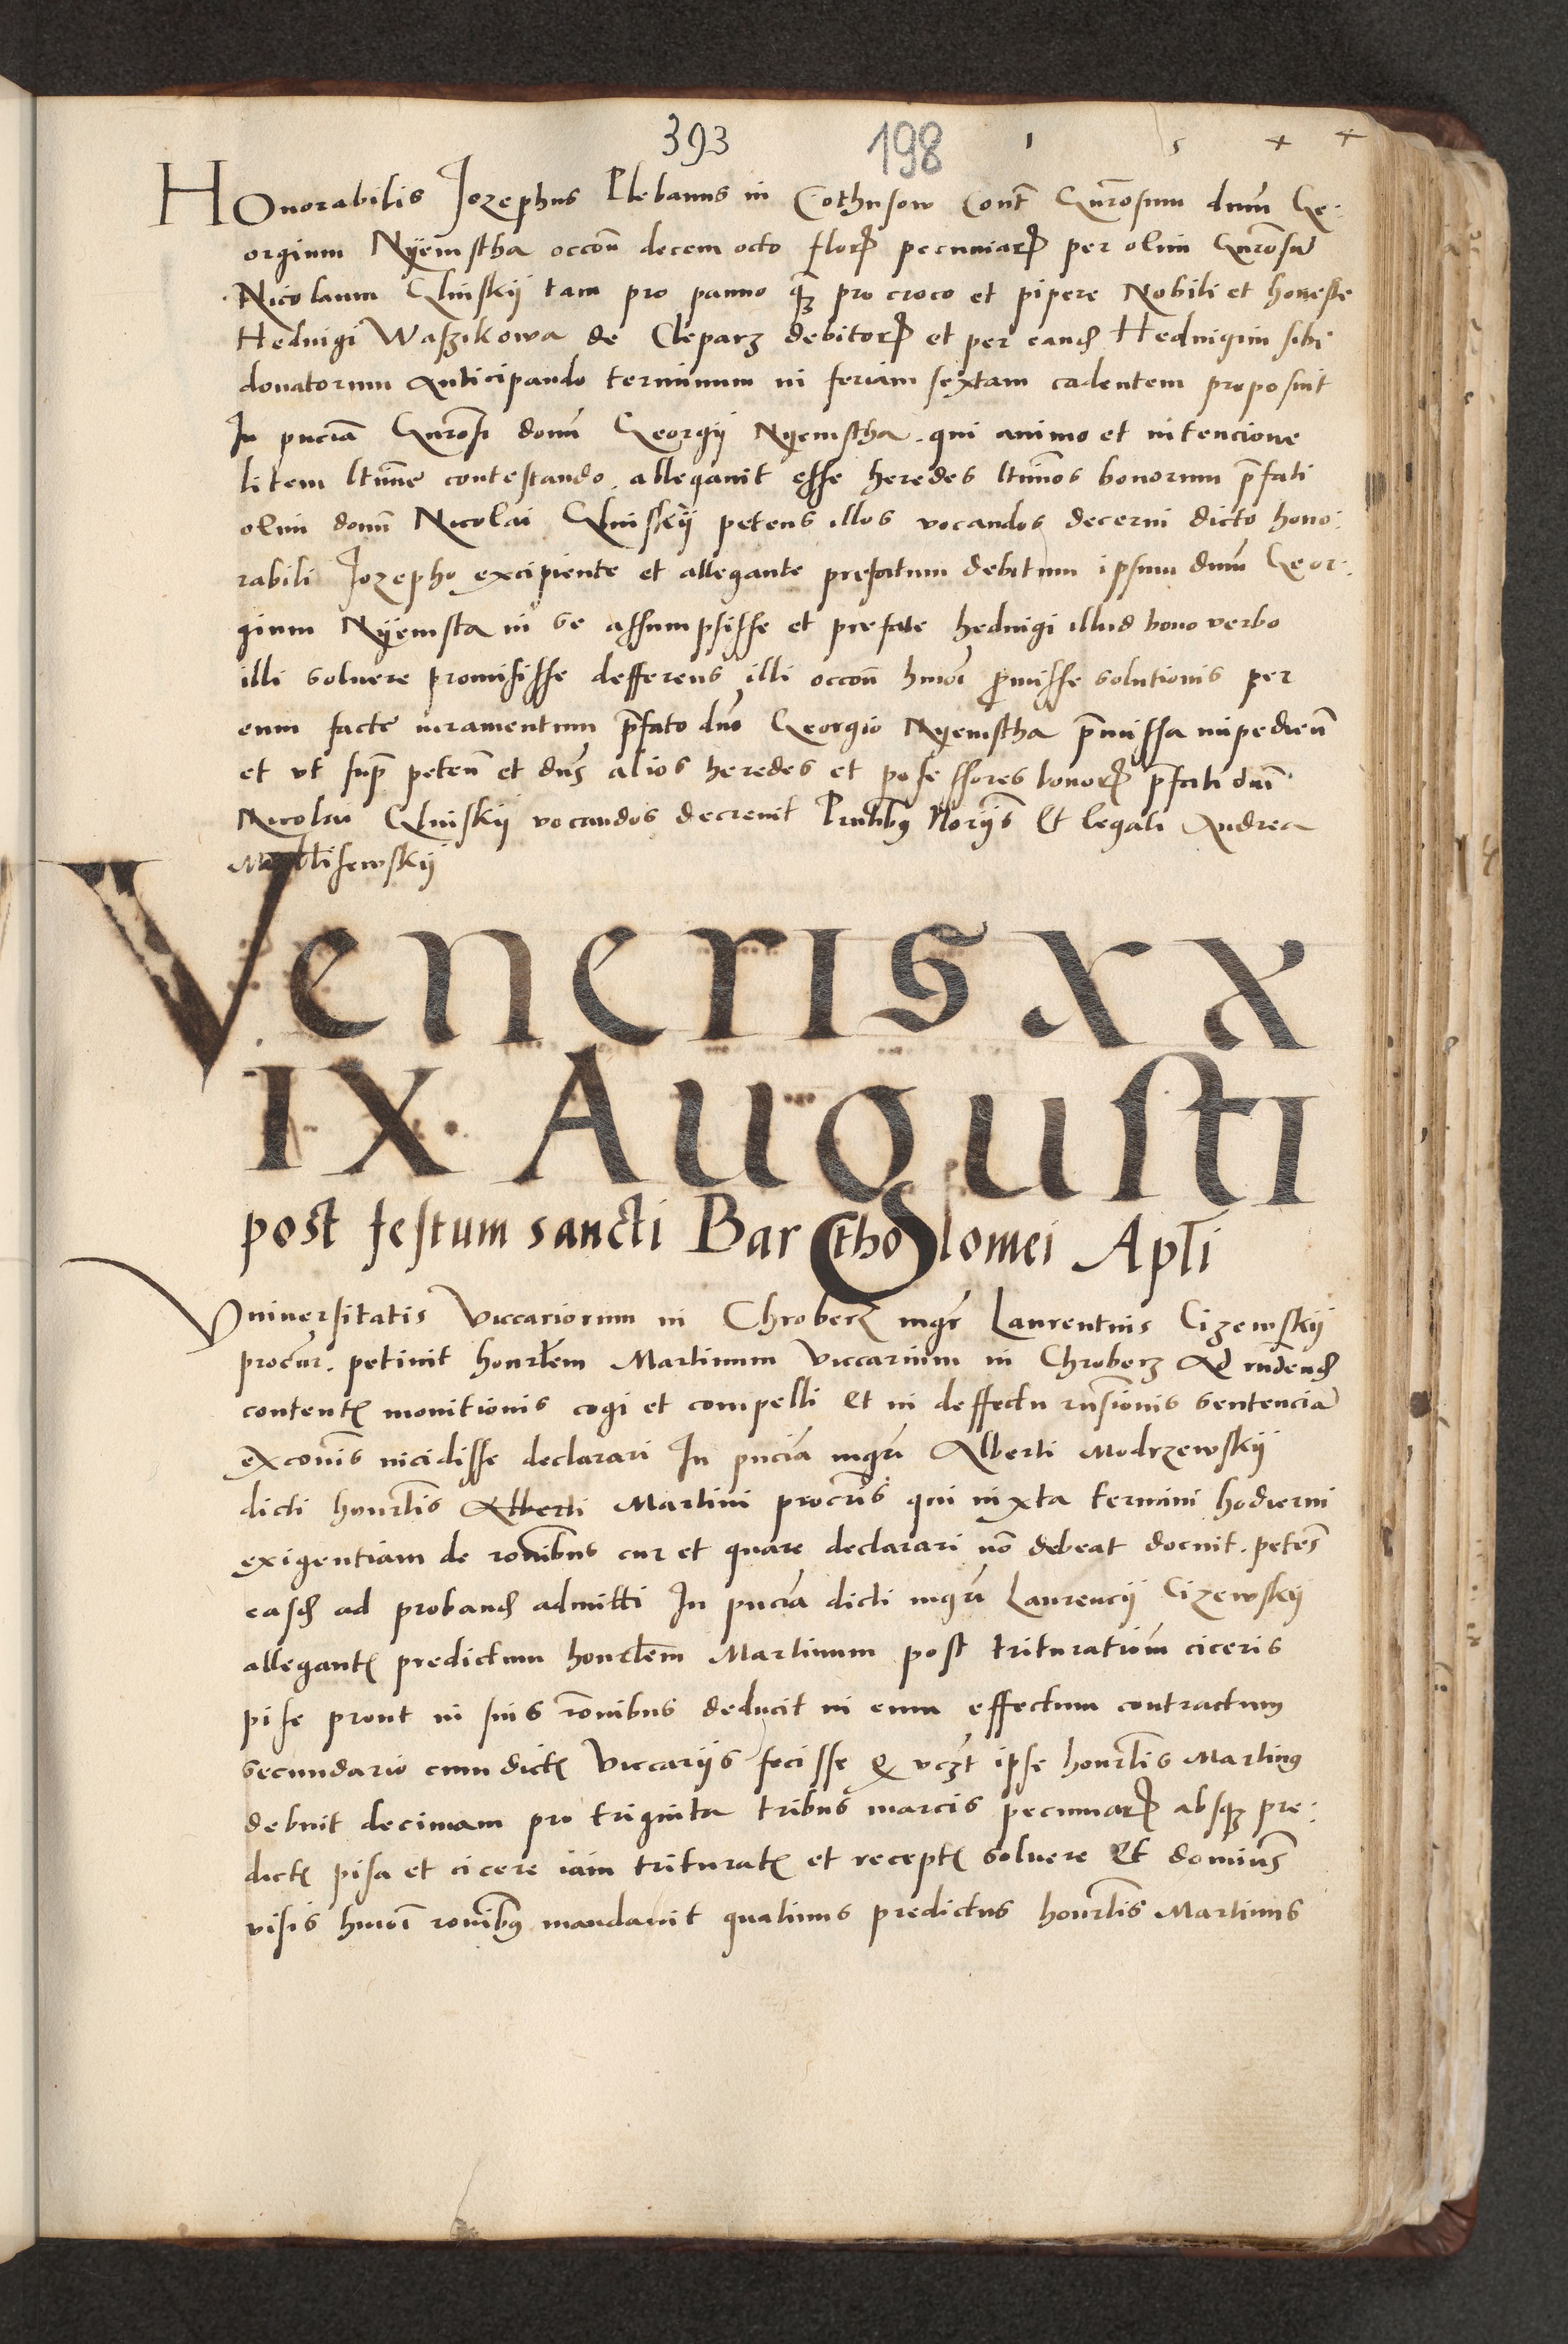 393 198 1 5 4 4
Honorabilis Jozephus Plebanus in Cothusow Cont Gnrosum dnm Ge:
orgium Nÿemstha occoñ decem octo flor pecuniar per olim Gnrosu
Nicolaum Glinskÿ tam pro panno qz pro croco et pipere Nobili et honeste
Heduigi Waszikowa de Cleparz debitor et per eand Heduigim sibi
donatorum Anticipando terminum in feriam sextam cadentem proposuit
In pncia Gnrosi domi Georgÿ Nyemstha. qui animo et intencione
litem ltime contestando. allegauit esse heredes ltimos bonorum pfati
olim domi Nicolai Glinskÿ petens illos vocandos decerni dicto hono:
rabili Jozepho excipiente et allegante prefatum debitum ipsum dnm Geor:
gium Nÿemsta in se assumpsisse et prefate heduigi illud bono verbo
illi soluere promisisse defferens illi occoñ hmoi pmisse solutionis per
eum facte iuramentum pfato dno Georgio Nyemstha pmissa impedien
et vt sup peten et dns alios heredes et possessores bonor pfati dni
Nicolai Glinskÿ vocandos decreuit Pntibus Norÿs Et legali Andrea
Mathisewskÿ
Veneris xx
ix Augusti
post festum sancti Bartholomei Apli
Vniuersitatis Viccariorum in Chroberz mgr Laurentius Cizewskÿ
procur. petiuit honrlem Martinum Viccarium in Chroberz Ad rndend
content monitionis cogi et compelli Et in deffectu rnsionis sentencia
exconis incidisse declarari In pncia mgri Alberti Modrzewskÿ
dicti honrlis Alberti Martini procris qui iuxta termini hodierni
exigentiam de ronibus cur et quare declarari no debeat docuit. petens
easd ad proband admitti In pncia dicti mgri Laurencÿ Cizewskÿ
allegant predictum honrlem Martinum post trituratiom ciceris
pise prout in suis ronibus deducit in eum effectum contractum
secundario cum dict Viccarÿs fecisse q vczt ipse honrlis Martinus
debuit decimam pro triginta tribus marcis pecuniar absqz pre:
dict pisa et cicere iam triturat et recept soluere Et dominus
visis hmoi ronibus mandauit quatinus predictus honrlis Martinus